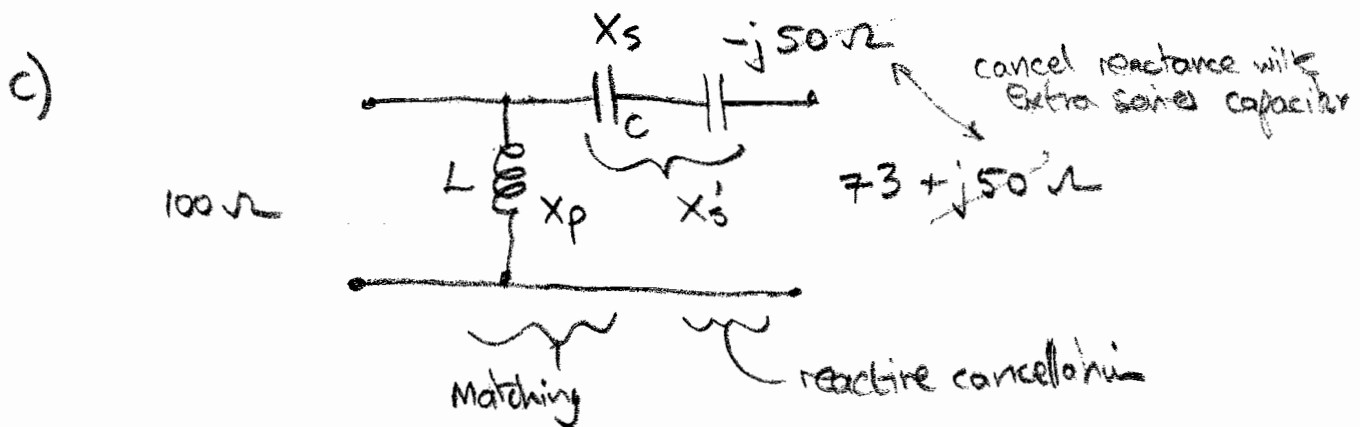 c)
Xs
-j50Ω
cancel reactance with
Extra series capacitor
C
L
Xp
Xs'
73 + j50Ω
100Ω
Matching
reactive cancellation